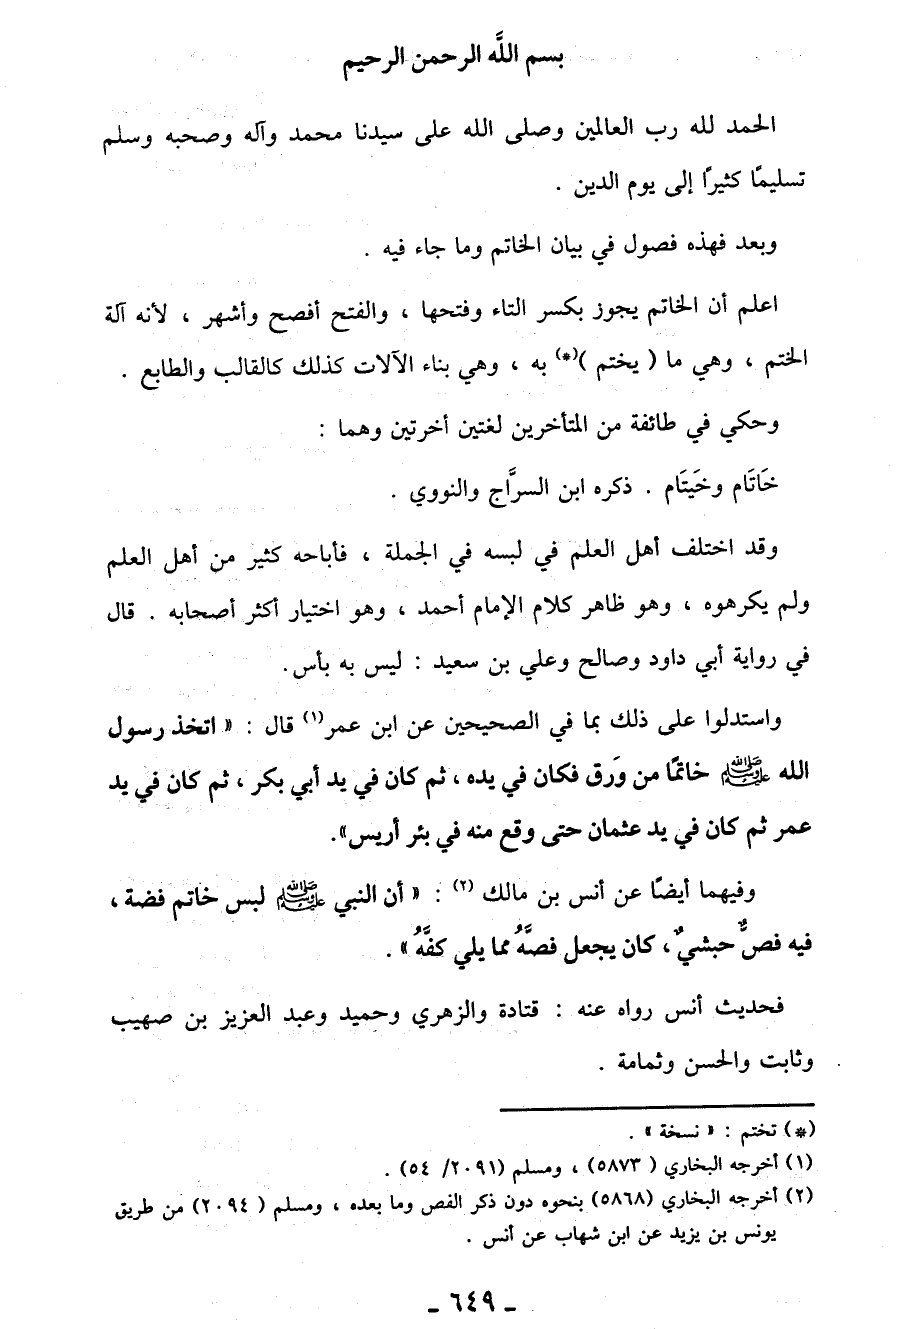 بسم اللَّه الرحمن الرحيم
الحمد لله رب العالمين وصلى الله على سيدنا محمد وآله وصحبه وسلم
تسليمًا كثيرًا إلى يوم الدين .
وبعد فهذه فصول في بيان الخاتم وما جاء فيه .
اعلم أن الخاتم يجوز بكسر التاء وفتحها ، والفتح أفصح وأشهر ، لأنه آلة
الختم ، وهي ما ( يختم )(*) به ، وهي بناء الآلات كذلك كالقالب والطابع .
وحكي في طائفة من المتأخرين لغتين أخرتين وهما :
خَاتَام وخَيتَام . ذكره ابن السرَّاج والنووي .
وقد اختلف أهل العلم في لبسه في الجملة ، فأباحه كثير من أهل العلم
ولم يكرهوه ، وهو ظاهر كلام الإمام أحمد ، وهو اختيار أكثر أصحابه . قال
في رواية أبي داود وصالح وعلي بن سعيد : ليس به بأس.
واستدلوا على ذلك بما في الصحيحين عن ابن عمر(١) قال : « اتخذ رسول
الله ﷺ خاتمًا من وَرق فكان في يده ، ثم كان في يد أبي بكر ، ثم كان في يد
عمر ثم كان في يد عثمان حتى وقع منه في بئر أريس».
وفيهما أيضًا عن أنس بن مالك (٢) : « أن النبي ﷺ لبس خاتم فضة ،
فيه فصٌّ حبشيٌ ، كان يجعل فصهَُّ مما يلي كفَّهُ » .
فحديث أنس رواه عنه : قتادة والزهري وحميد وعبد العزيز بن صهيب
وثابت والحسن وثمامة .
(*) تختم : « نسخة » .
(١) أخرجه البخاري ( ٥٨٧٣) ، ومسلم (٢٠٩١/ ٥٤) .
(٢) أخرجه البخاري (٥٨٦٨) بنحوه دون ذكر الفص وما بعده ، ومسلم ( ٢٠٩٤) من طريق
يونس بن يزيد عن ابن شهاب عن أنس .
ـ ٦٤٩ ـ